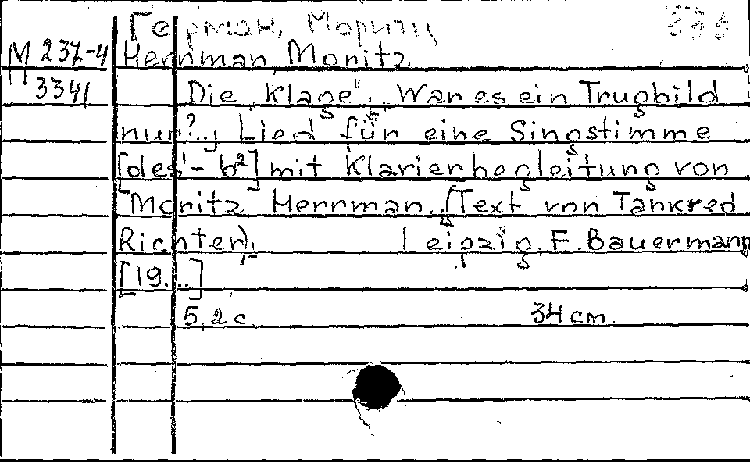 Герман, Мориц
М 237-4 Herrman, Moritz
3341 Die "Klage". War es ein Trugbild
nur?.. Lied für eine Singstimme
[des'-b²] mit Klavierbegleitung von
Moritz Herrman. (Text von Tankred
Richter). Leipzig, F. Bauermann
[19...]
5, 2 c. 34 cm.